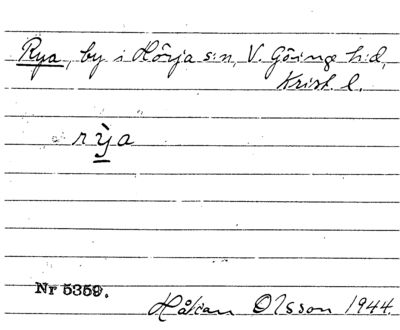 Rya, by i Hörja s:n, V. Göinge h:d,
Krist. l.
rỳa
Nr 5359.
Håkan Olsson 1944.